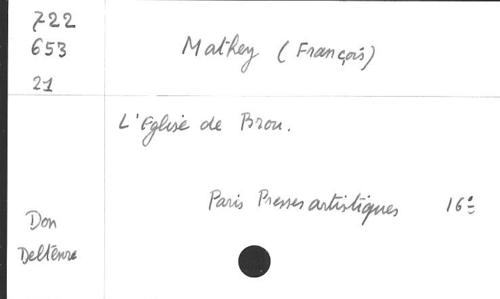 722
653
21
Mathey (François)
L'Eglise de Brou.
Paris Presses artistiques 16°
Don
Deltenre